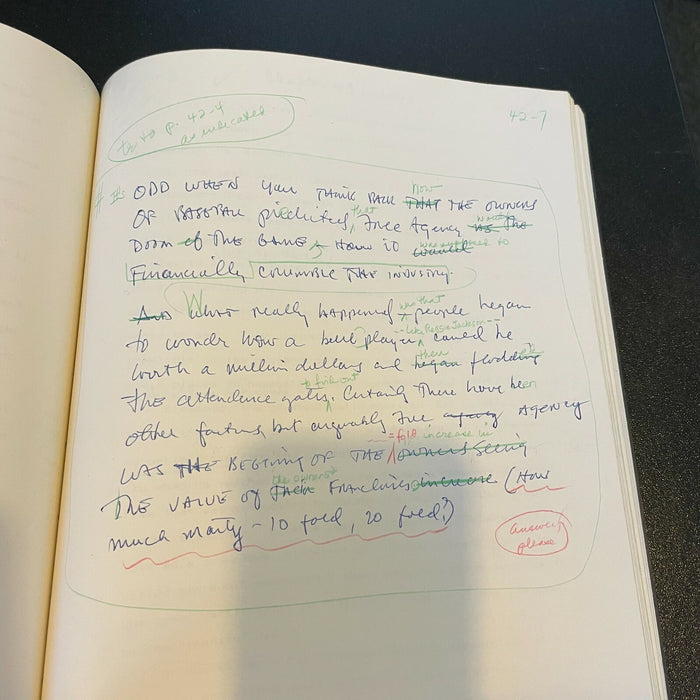 to p. 42-4
as indicated
42-7
# It's ODD WHEN you THINK BACK now THAT THE OWNERS
OF BASEBALL predicted, that Free Agency would AS THE
DOOM of THE GAME, HOW it would was supposed to
Financially CRUMBLE THE INDUSTRY.
AND What really happened was that people began
to wonder how a ball player, --like Reggie Jackson-- could be
worth a million dollars and then began flooding ed
the attendance gates, to find out. Certainly There have been
other factors, but arguably Free agency AGENCY
WAS THE BEGINING OF THE =fold increase in owners seeing
THE VALUE of their the owners' FRANCHISES increase (How
much Marty - 10 fold, 20 fold?)
answer
please